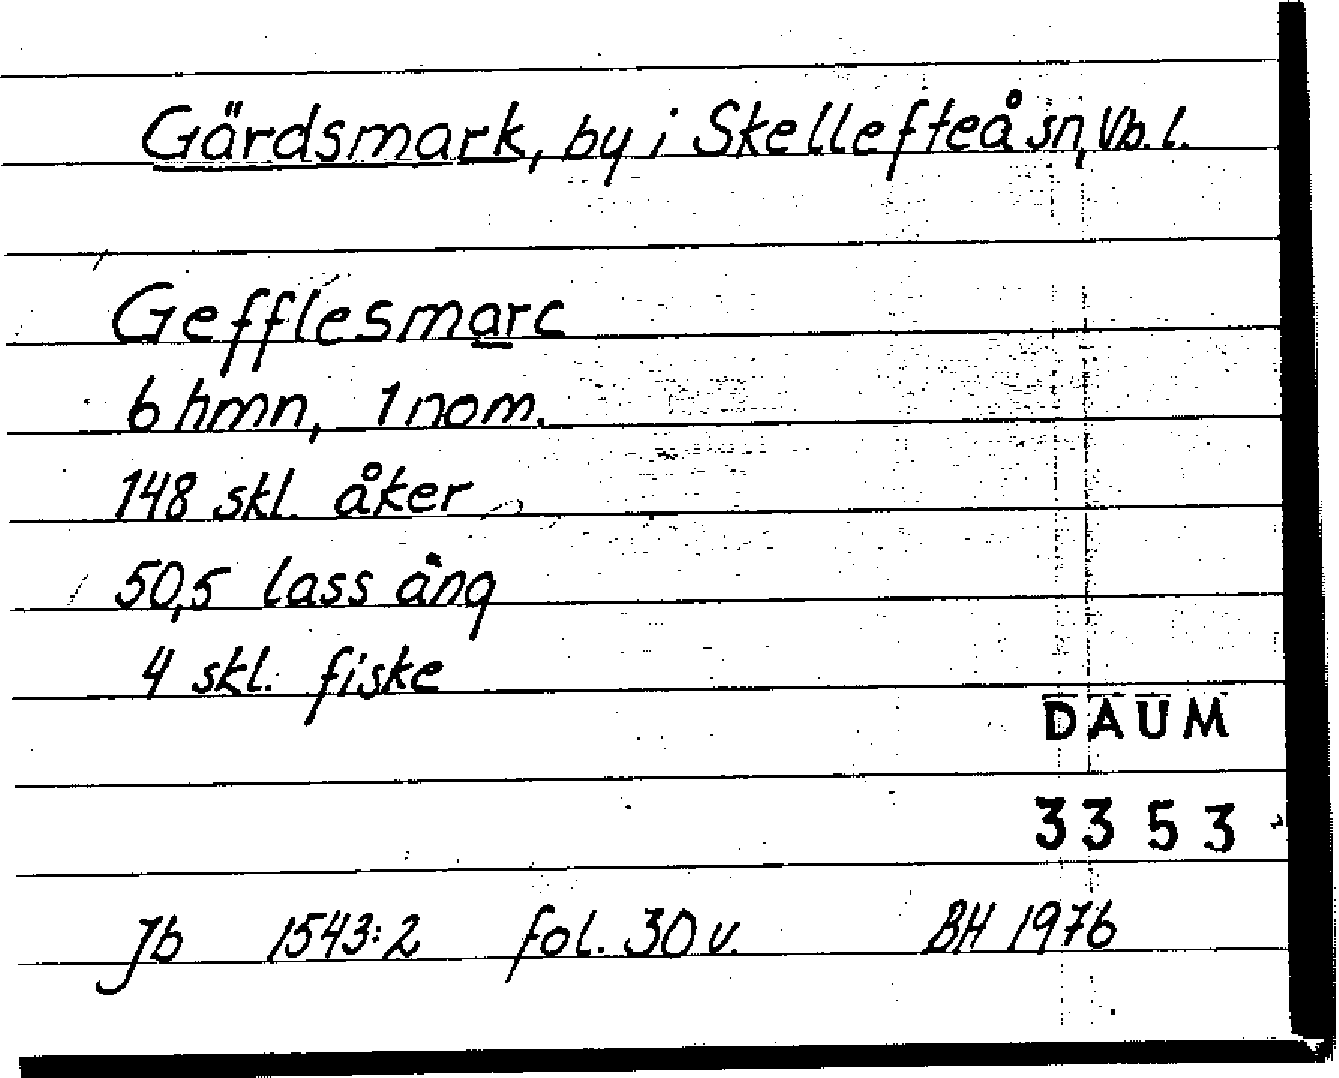 Gärdsmark, by i Skellefteå sn, Vb. l.
Gefflesmarc
6 hmn, 1 nom.
148 skl. åker
50,5 lass äng
4 skl. fiske
DAUM
3353
Jb 1543:2 fol. 30 v. BH 1976